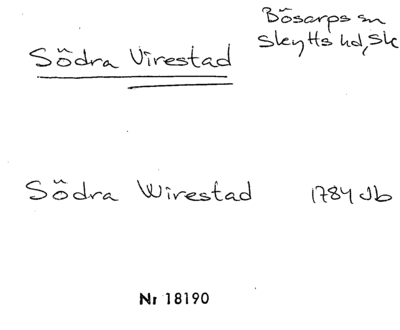 Bösarps sn
Södra Virestad
Skytts hd, Sk
Södra Wirestad 1784 Jb
Nr 18190